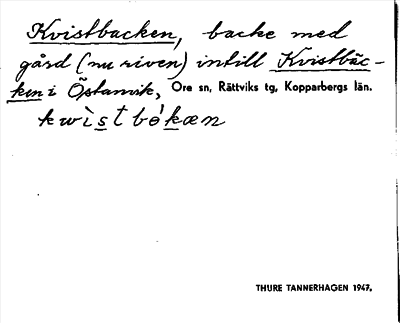 Kvistbacken, backe med
gård (nu riven) intill Kvistbäc-
ken i Östanvik, Ore sn, Rättviks tg, Kopparbergs län.
kwìstbókæn
THURE TANNERHAGEN 1947.